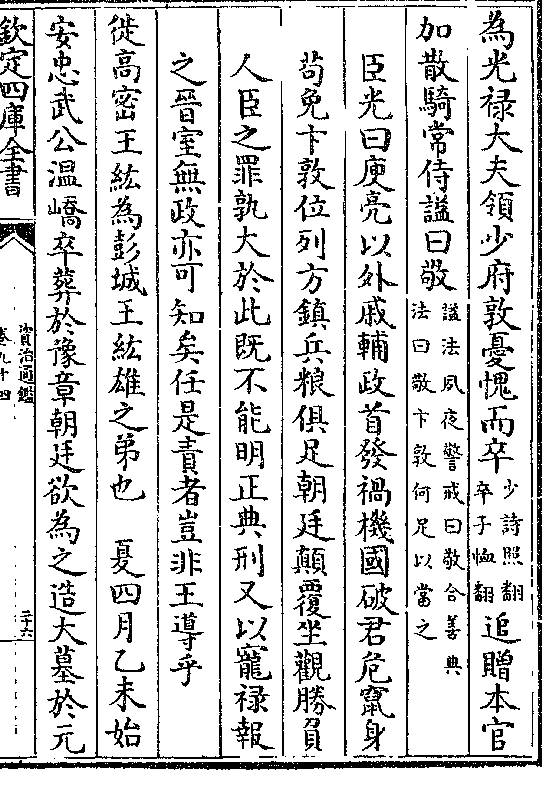 為光禄大夫領少府敦憂愧而卒少詩照翻卒子恤翻追贈本官
加散騎常侍諡曰敬諡法夙夜警戒曰敬合善典法曰敬卞敦何足以當之
臣光曰庾亮以外戚輔政首發禍機國破君危竄身
苟免卞敦位列方鎮兵粮俱足朝廷顛覆坐觀勝負
人臣之罪孰大於此既不能明正典刑又以寵禄報
之晉室無政亦可知矣任是責者豈非王導乎
徙高密王紘為彭城王紘雄之弟也　夏四月乙未始
安忠武公温嶠卒葬於豫章朝廷欲為之造大墓於元
欽定四庫全書
資治通鑑
卷九十四
二十六